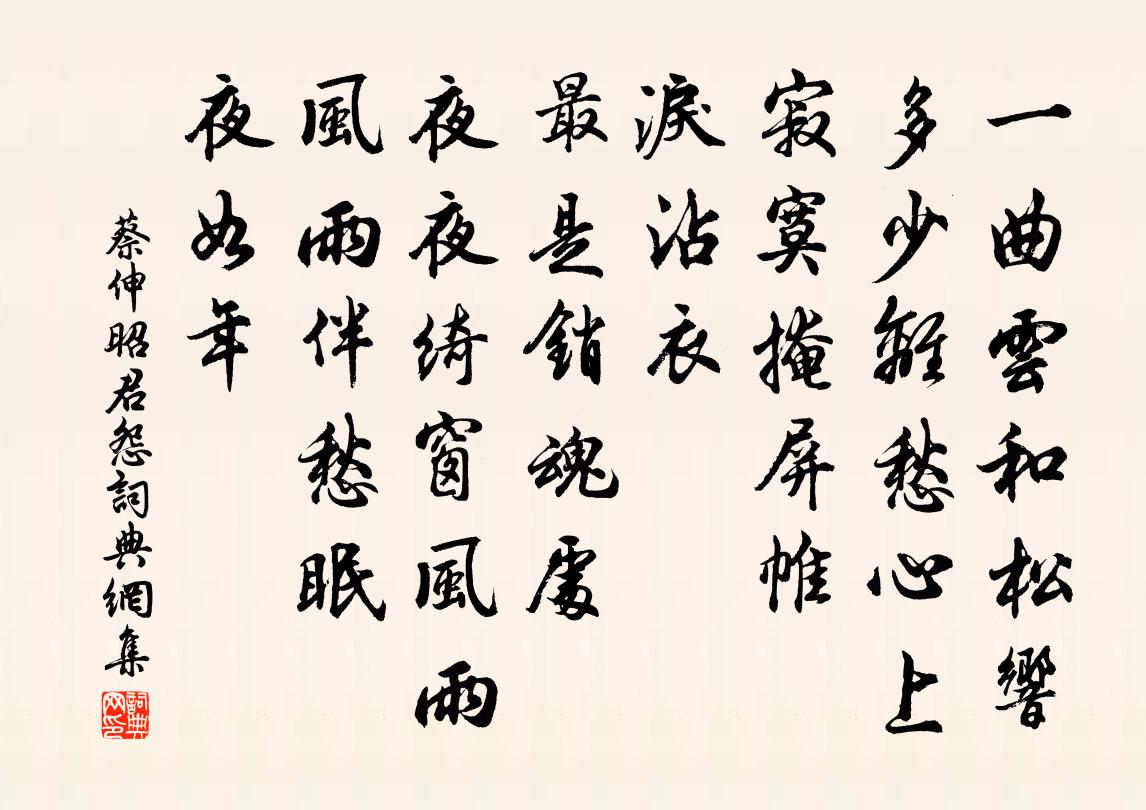 一曲雲和松響
多少離愁心上
寂寞掩屏帷
淚沾衣
最是銷魂處
夜夜綺窗風雨
風雨伴愁眠
夜如年
蔡伸昭君怨詞典網集
詞典网印